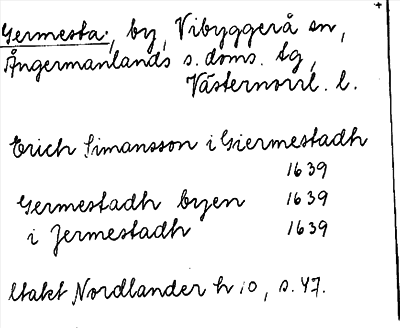 Germesta, by, Vibyggerå sn,
Ångermanlands s. doms. tg,
Västernorrl. l.
Erich Simansson i Giermestadh
1639
Germestadh byen 1639
i Jermestadh 1639
Utakt Nordlander h 10, s. 47.